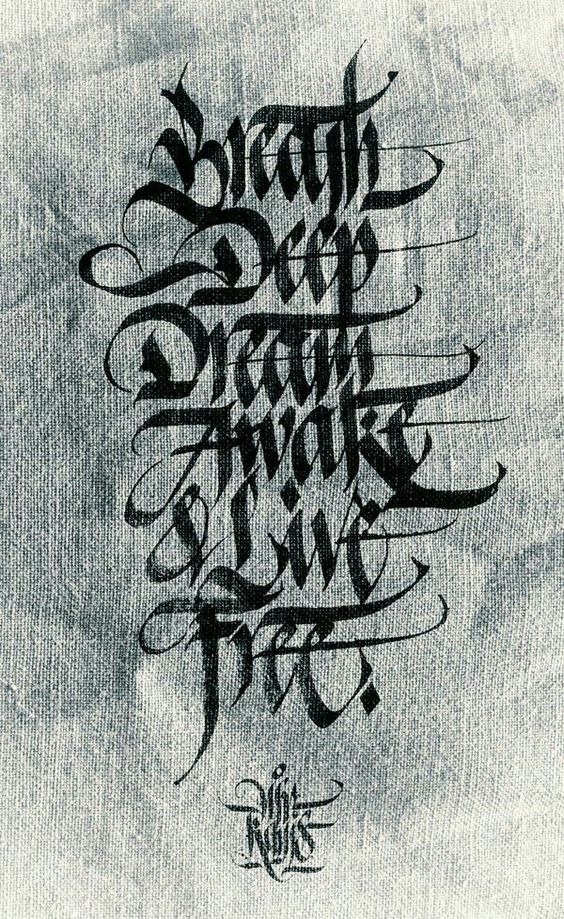 Breath
Deep
Dream
Awake
& Live
Free.